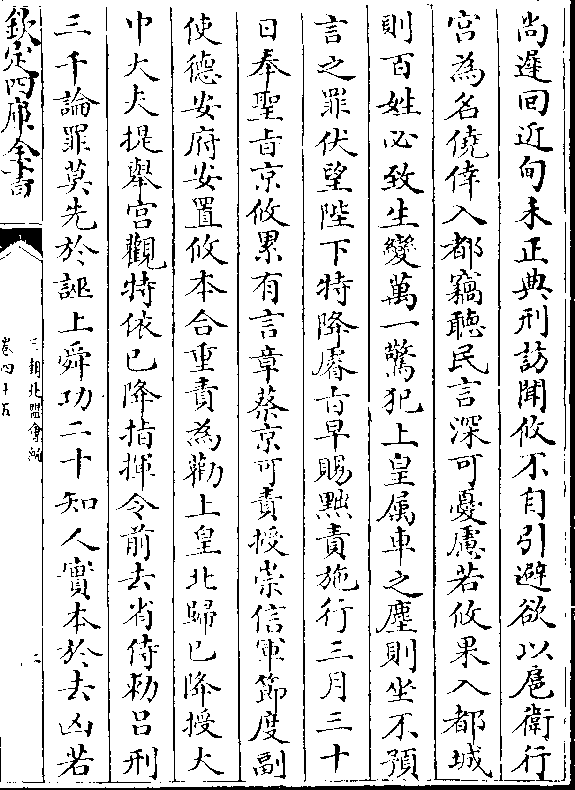 尚遲回近甸未正典刑訪聞攸不自引避欲以扈衛行
宮為名僥倖入都竊聽民言深可憂慮若攸果入都城
則百姓必致生變萬一驚犯上皇属車之塵則坐不預
言之罪伏望陛下特降睿旨早賜黜責施行三月三十
日奉聖旨京攸累有言章蔡京可責授崇信軍節度副
使德安府安置攸本合重責為勸上皇北歸已降授大
中大夫提舉宮觀特依已降指揮令前去省侍勅吕刑
三千論罪莫先於誣上舜功二十知人實本於去凶若
欽定四庫全書
三朝北盟會編
卷四十五